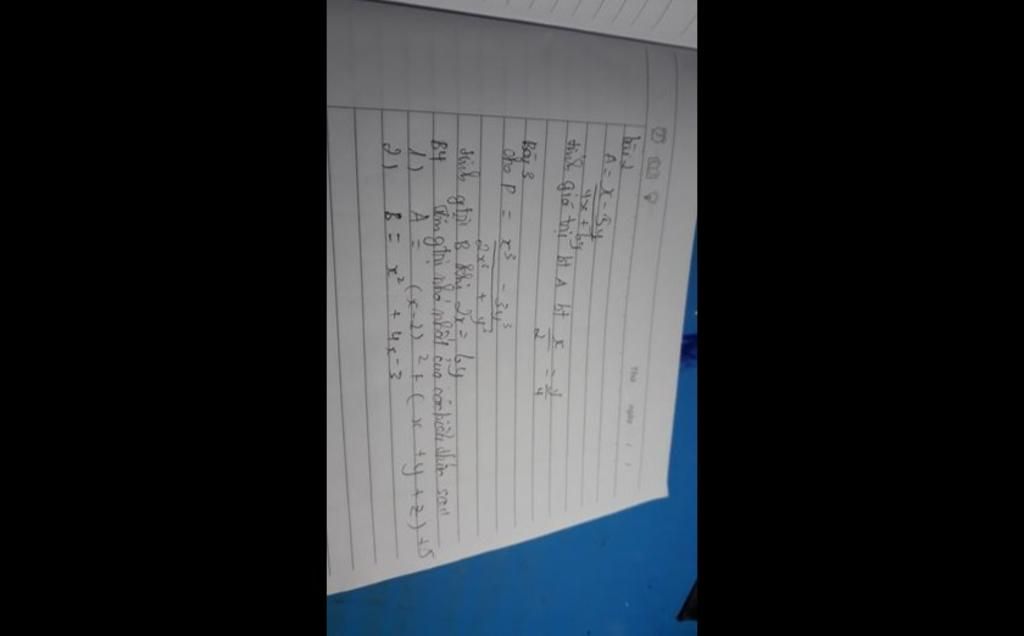 bài 2
A = x - 3y
4x + 6y
tính giá trị bt A bt x/2 = y/4
Bài 3
cho P = x³ - 3y³
2x³ + y³
tính gtrị B khi 2x = 6y
B4 tìm gtrị nhỏ nhất của các biểu thức sau
1) A = (x-2)² + (x + y + z) + 5
2) B = x² + 4x - 3